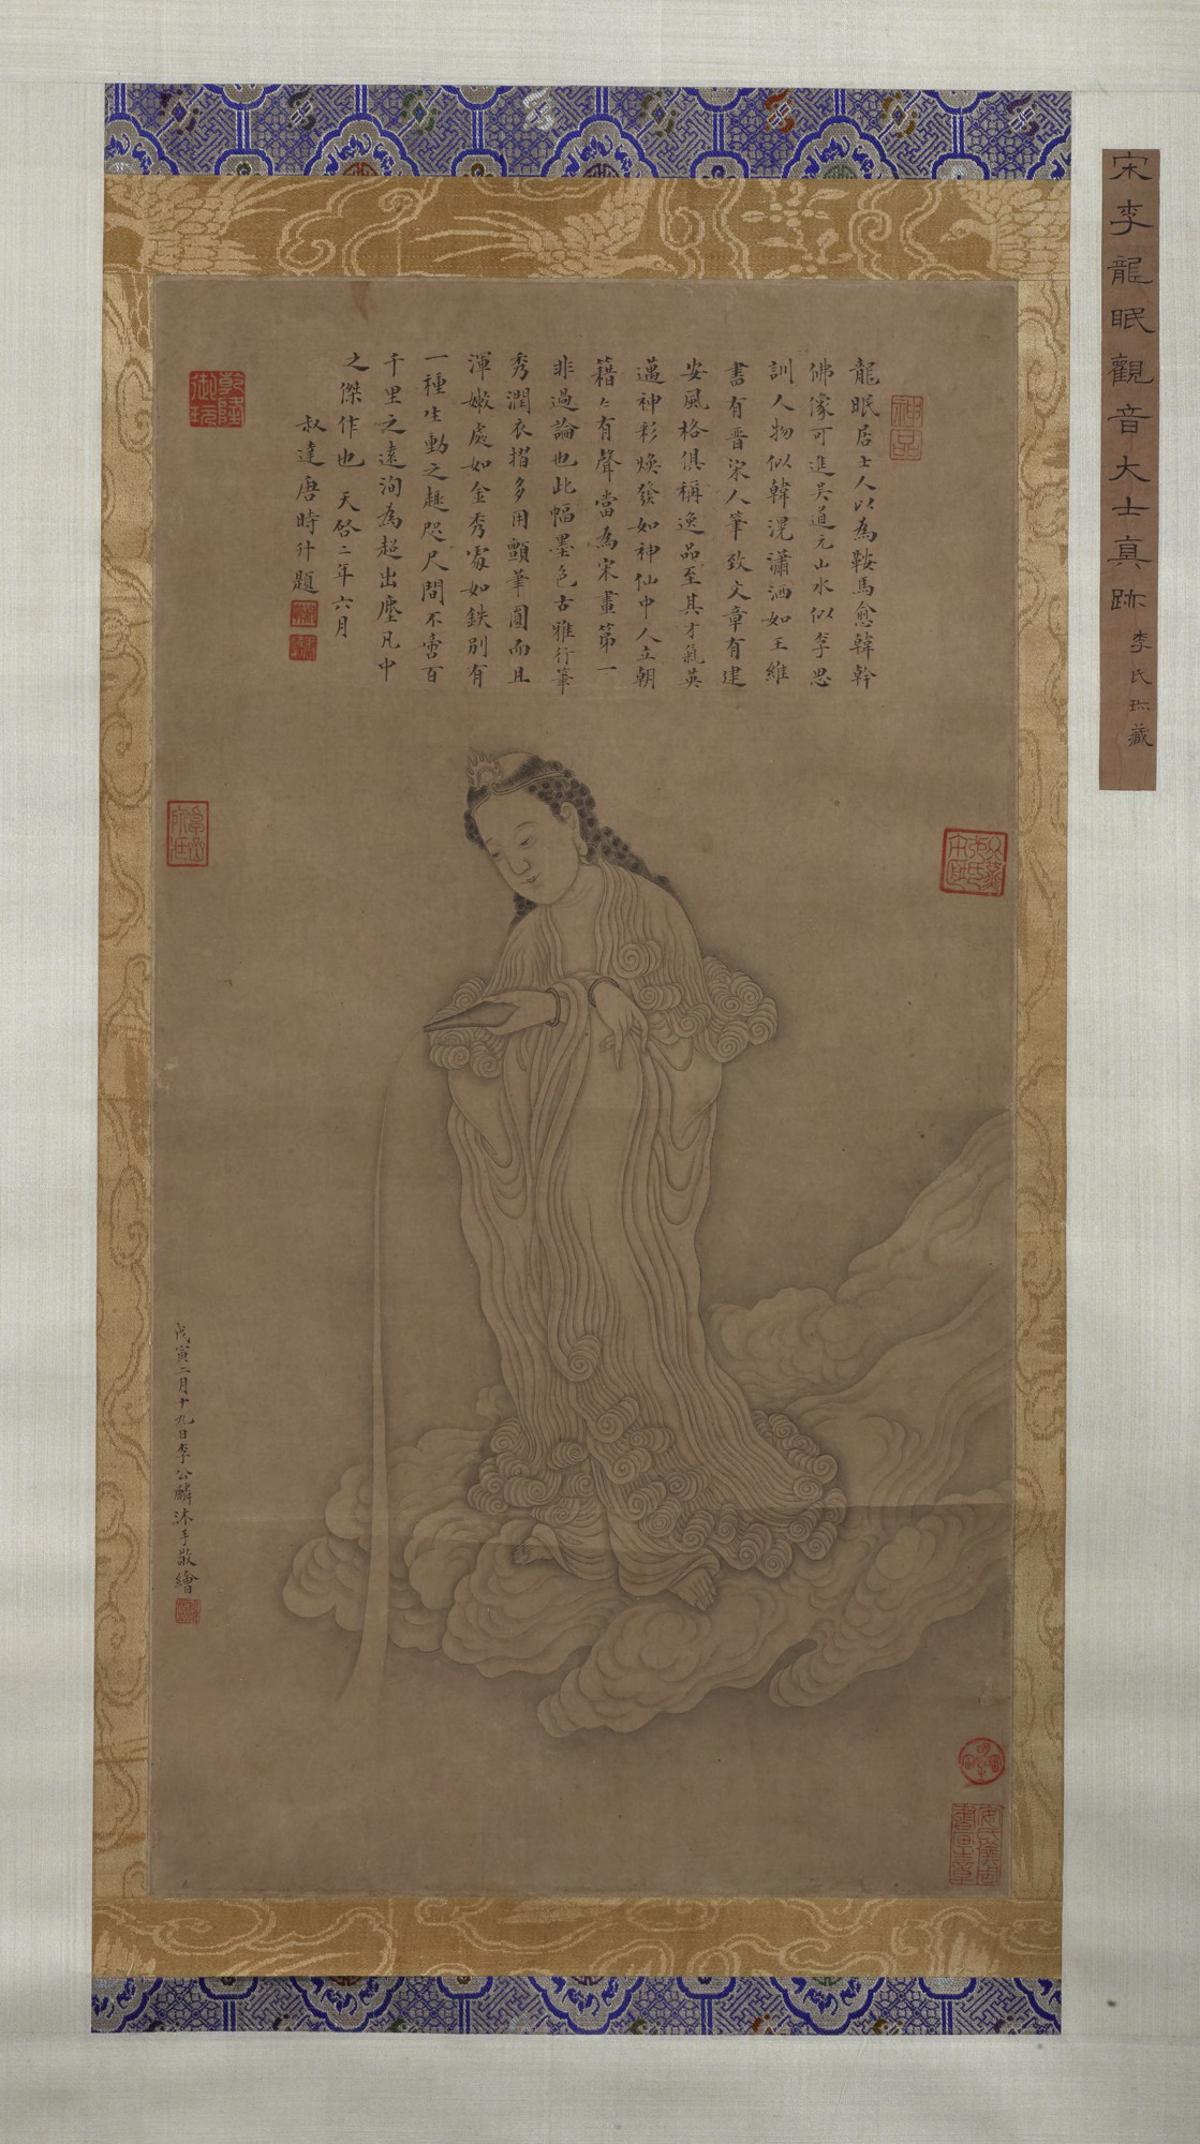 宋李龍眠觀音大士真跡
李氏珍藏
神品
龍眠居士人以為鞍馬愈韓幹
佛像可進吳道元山水似李思
訓人物似韓滉瀟洒如王維
書有晉宋人筆致文章有建
安風格俱稱逸品至其才氣英
邁神彩煥發如神仙中人立朝
籍々有聲當為宋畫第一
非過論也此幅墨色古雅行筆
秀潤衣摺多用顫筆圓而且
渾嫩處如金秀處如鉄別有
一種生動之趣咫尺間不啻百
千里之遠洵為超出塵凡中
之傑作也 天啓二年六月
叔達唐時升題
乾隆
御玩
戊寅二月十九日李公麟沐手敬繪
安氏儀周
書畫之章